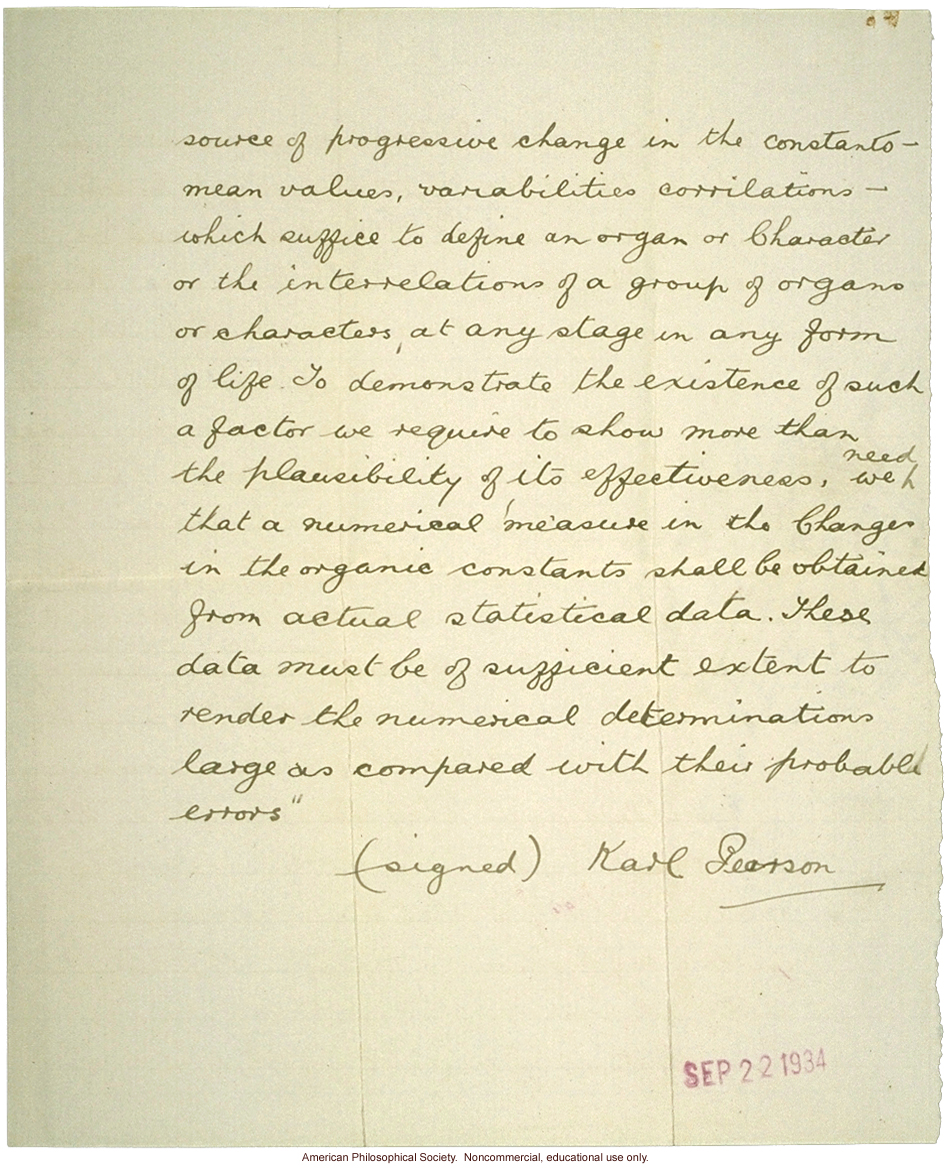 source of progressive change in the constants—
mean values, variabilities corrilations—
which suffice to define an organ or Character
or the interrelations of a group of organs
or characters, at any stage in any form
of life. To demonstrate the existence of such
a factor we require to show more than
need
the plausibility of its effectiveness, we
that a numerical measure in the Changes
in the organic constants shall be obtained
from actual statistical data. These
data must be of sufficient extent to
render the numerical determinations
large as compared with their probable
errors"
(signed) Karl Pearson
SEP 22 1934
American Philosophical Society. Noncommercial, educational use only.